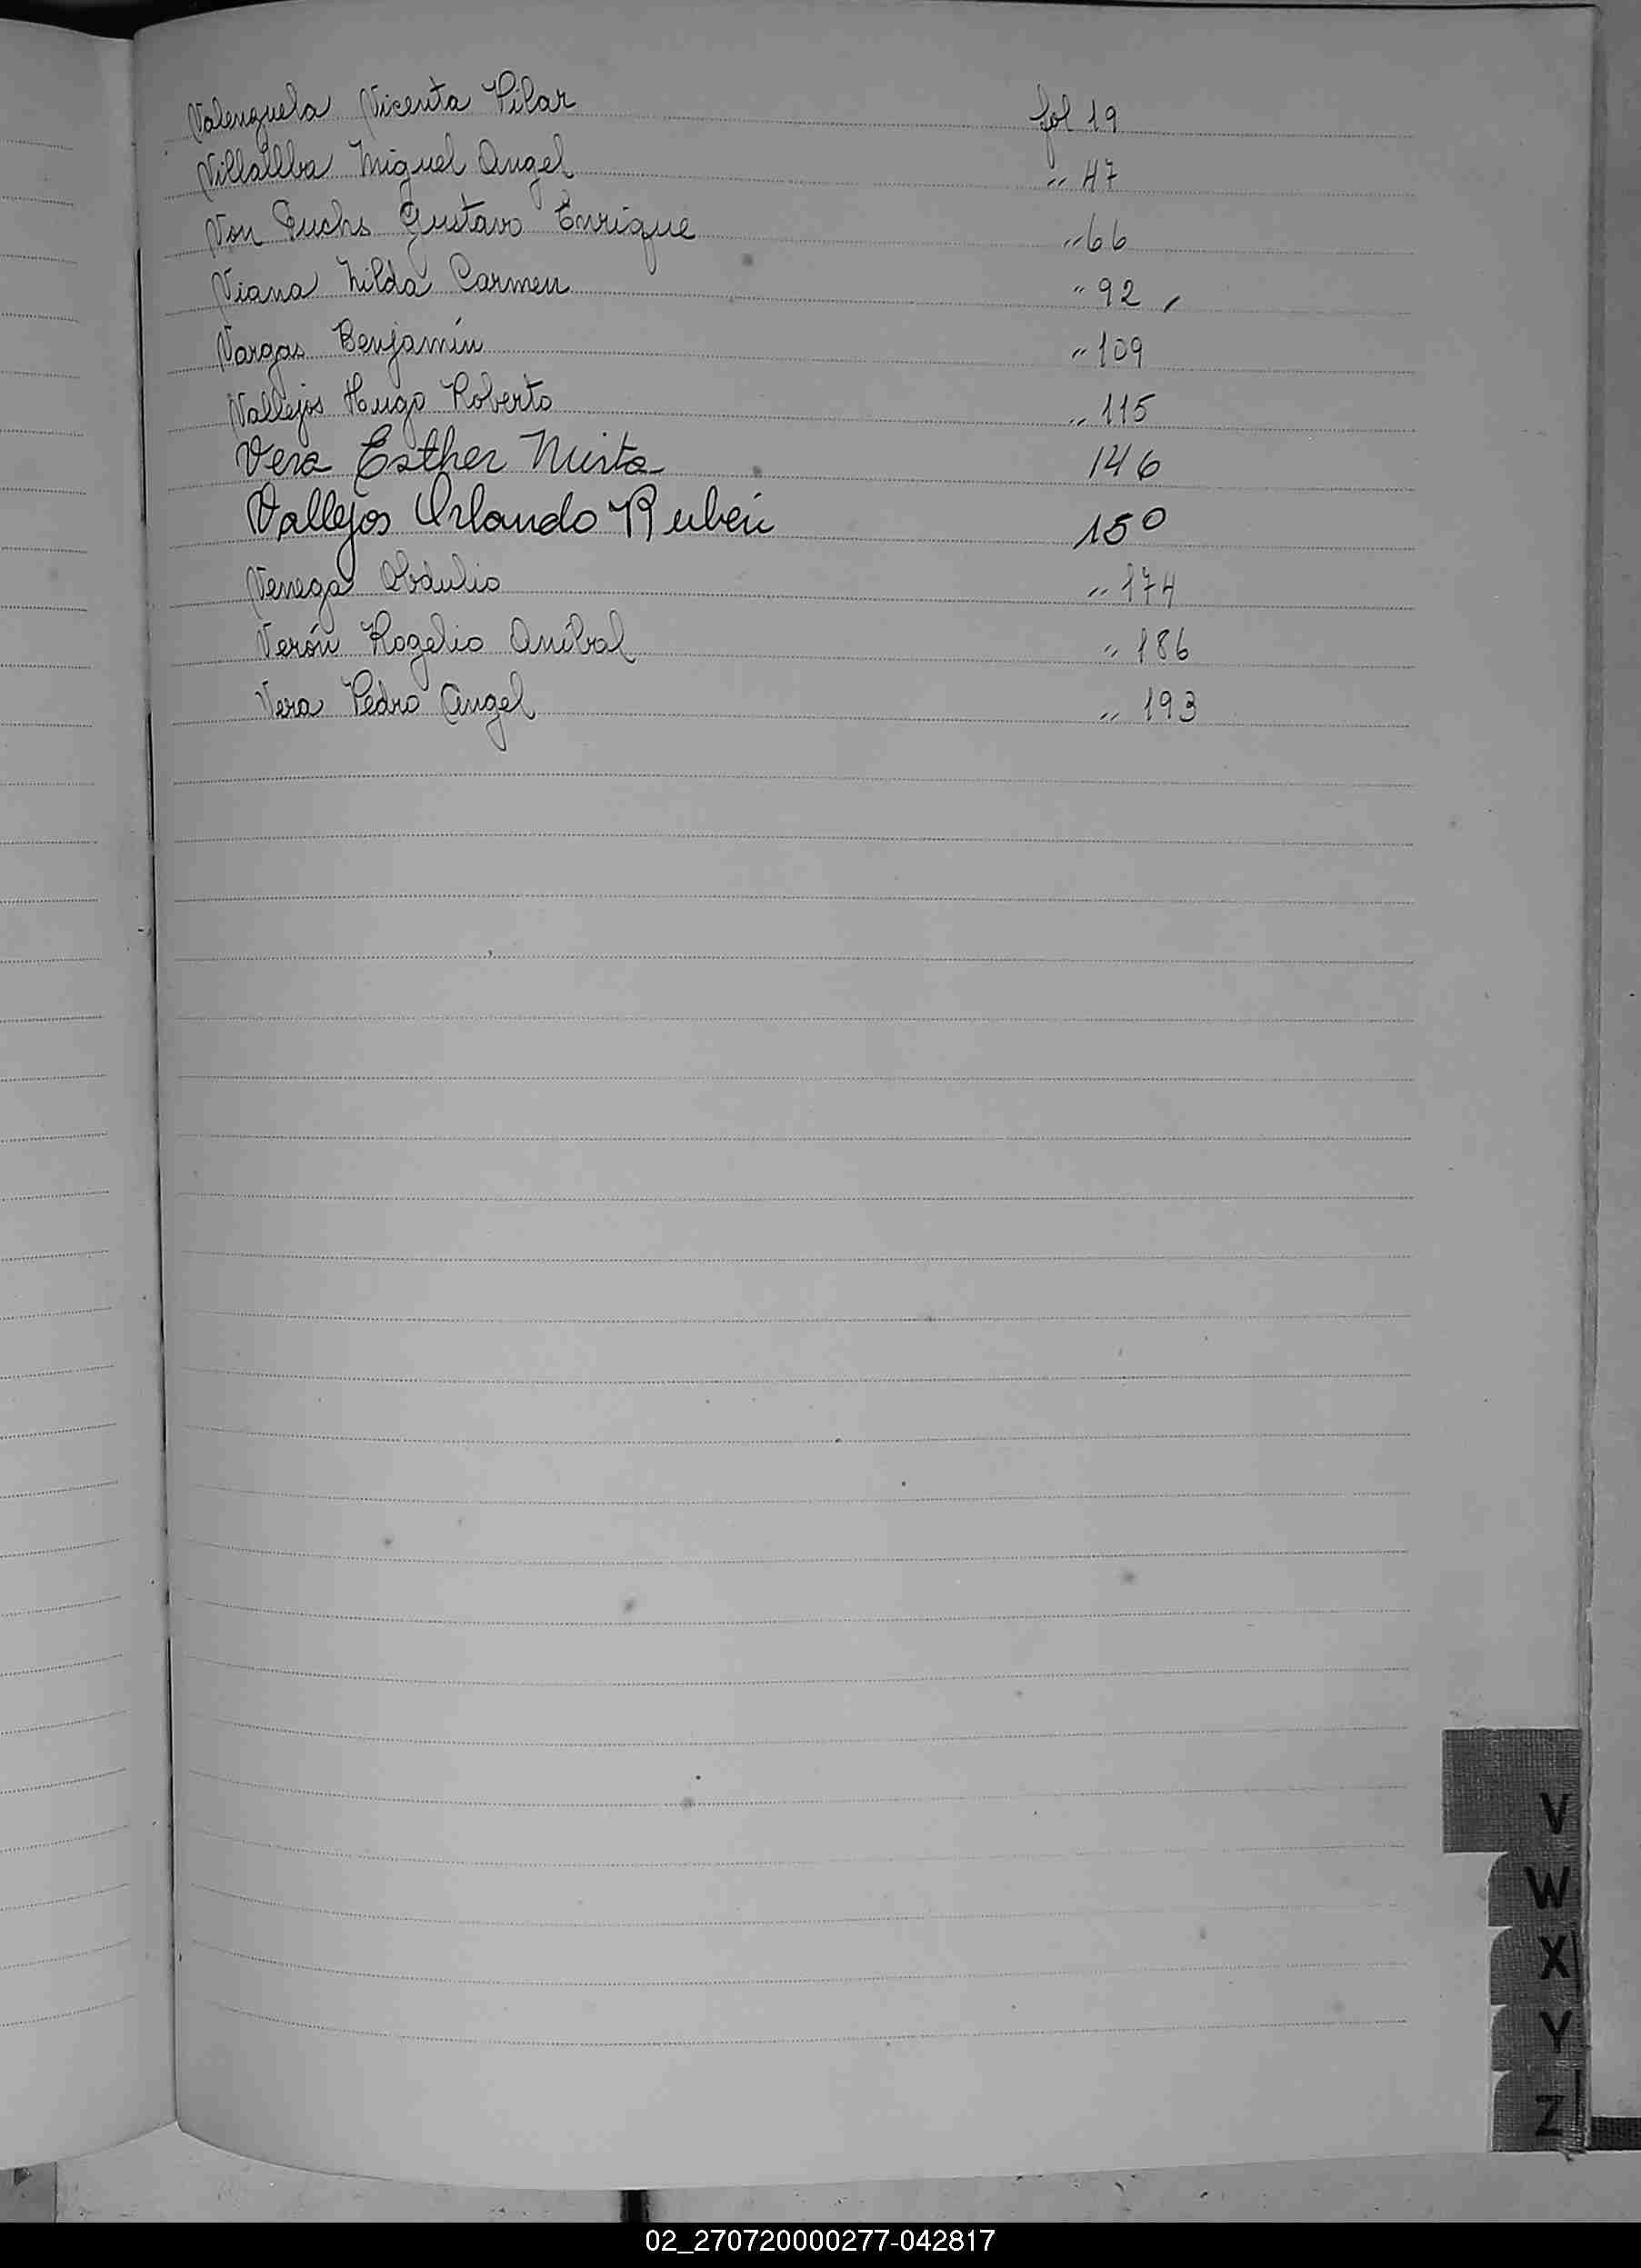 Valenzuela Vicenta Pilar fol 19
Villallba Miguel Angel " 47
Von Fuchs Gustavo Enrique " 66
Viana Nilda Carmen " 92
Vargas Benjamín " 109
Vallejos Hugo Roberto " 115
Vera Esther Mirta 146
Vallejos Orlando Rubén 150
Venega Obdulio " 174
Verón Rogelio Aníbal " 186
Vera Pedro Angel " 193
V
W
X
Y
Z
02_270720000277-042817